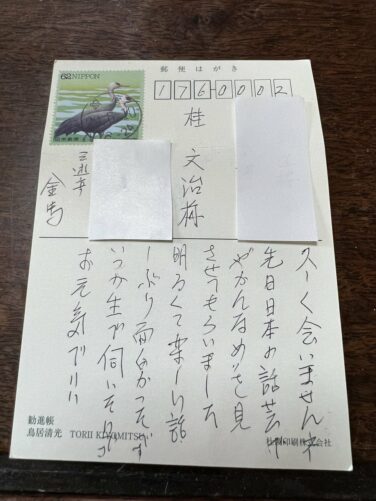 62 NIPPON
郵便はがき
1760002
桂 文治様
三遊亭
金馬
久しく会いませんネ
先日日本の話芸で
やかんなめを見
させてもらいました
明るくて楽しい話
しぶり面白かったです
いつか生で伺いた
お元気で
勧進帳
鳥居清光 TORII KIYOMITSU
印刷株式会社